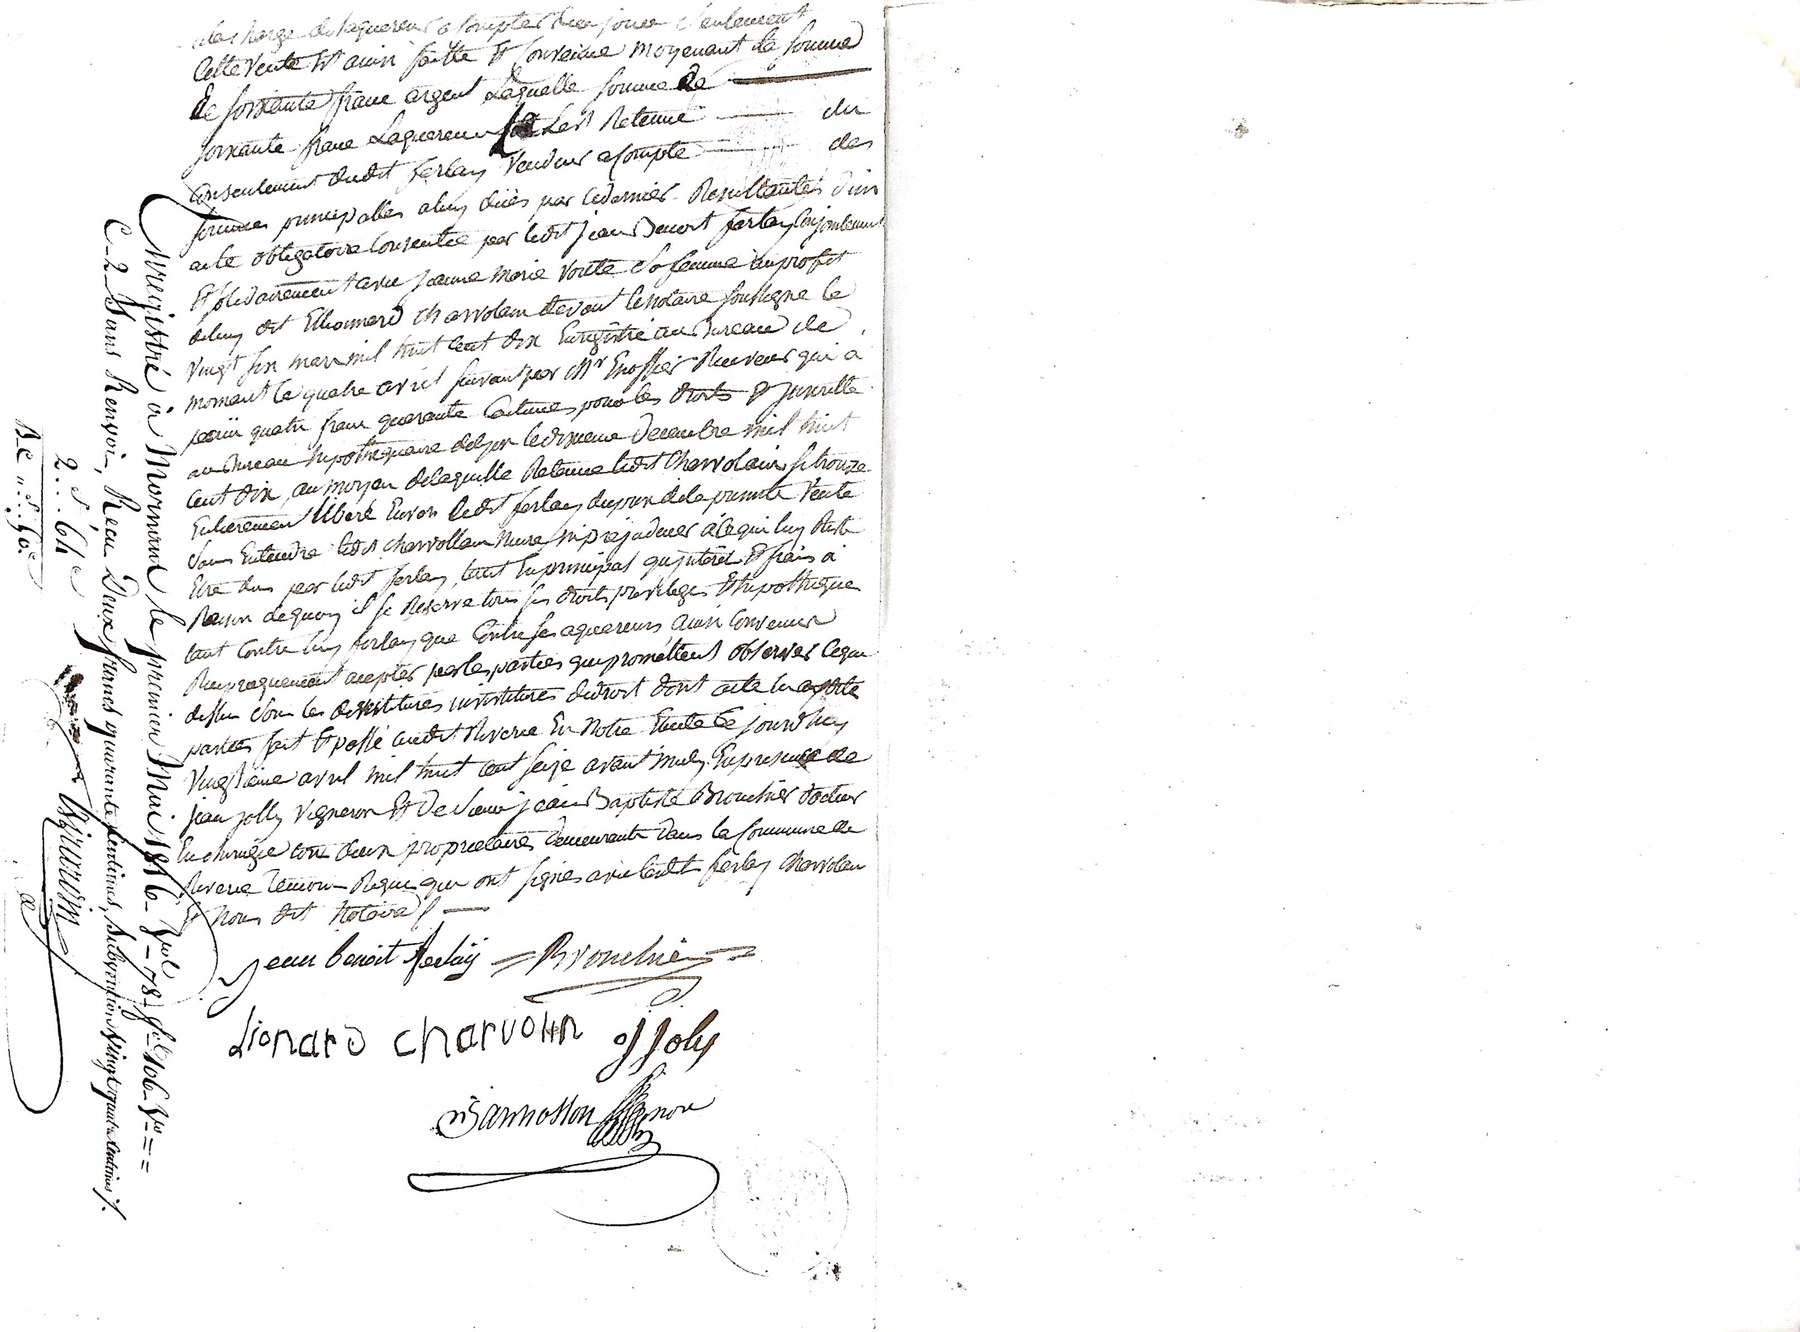 a la charge de laquereur a Compter de ce jour Seulement
Cette Vente Et ainsi faitte Et Convenue moyenant la somme
de soixante franc argent Laquelle somme de
soixante franc Laquereur sest Retenue du
Consentement dudit ferlay Vendeur a Compte des
sommes principalles a luy dües par cedernier Resultantes d'un
acte obligatoire Consentie par ledit jean Benoit ferlay Conjointement
Et solidairement avec jeanne Marie Voute Sa femme au profit
deluy dit Lionnard Charvolain devant lenotaire soussigné le
Vingt six mars mil huit cent dix Enregistré au Bureau de
mornant le quatre avril suivant par Mr Receveur qui a
perçu quatre franc quarante Centimes pour les droits Et jnscritte
au Bureau hypothequaire de Lyon le dixieme decembre mil huit
cent dix, au moyen delaquelle Retenue ledit Charvolain se trouve
Entierement Libéré Envers ledit ferlay du prix dela presente Vente
Sans Entendre ledit Charvollain Nuire ni prejudicier à Ce qui luy Reste
Etre du par ledit ferlay, tant En principal qu'jnteret Et frais à
Raison dequoy il se Reserve tous ses droits privileges Et hypotheque
tant Contre luy ferlay que Contre ses aquereurs ainsi Convenu
Reciproquement accepter par les parties qui promettent observer Cequi
dessus Sous les desistitures investitures de droit dont acte
parties fait Et passé audit Riverie En Notre Etude Ce jourdhuy
Vingtieme avril mil huit cent seize avant midy En presence de
jean jolly Vigneron Et De Sieur jean Baptiste Brouchier docteur
En chirurgie tous deux proprietaires demeurants dans la Commune de
Riverie Temoins Requis qui ont signés avec ledit ferlay Charvolain
Et Nous dit Notaire
jean benoit ferlaÿ Brouchié
Lionard Charvolin jjoly
Bannosson
Enregistré à Mornant le premier Mai 1816. fol. 78 Vo
C. 2. Sans Renvoi, Recu Deux francs quarante centimes, Subvention vingt quatre centimes
2 f. 64 c